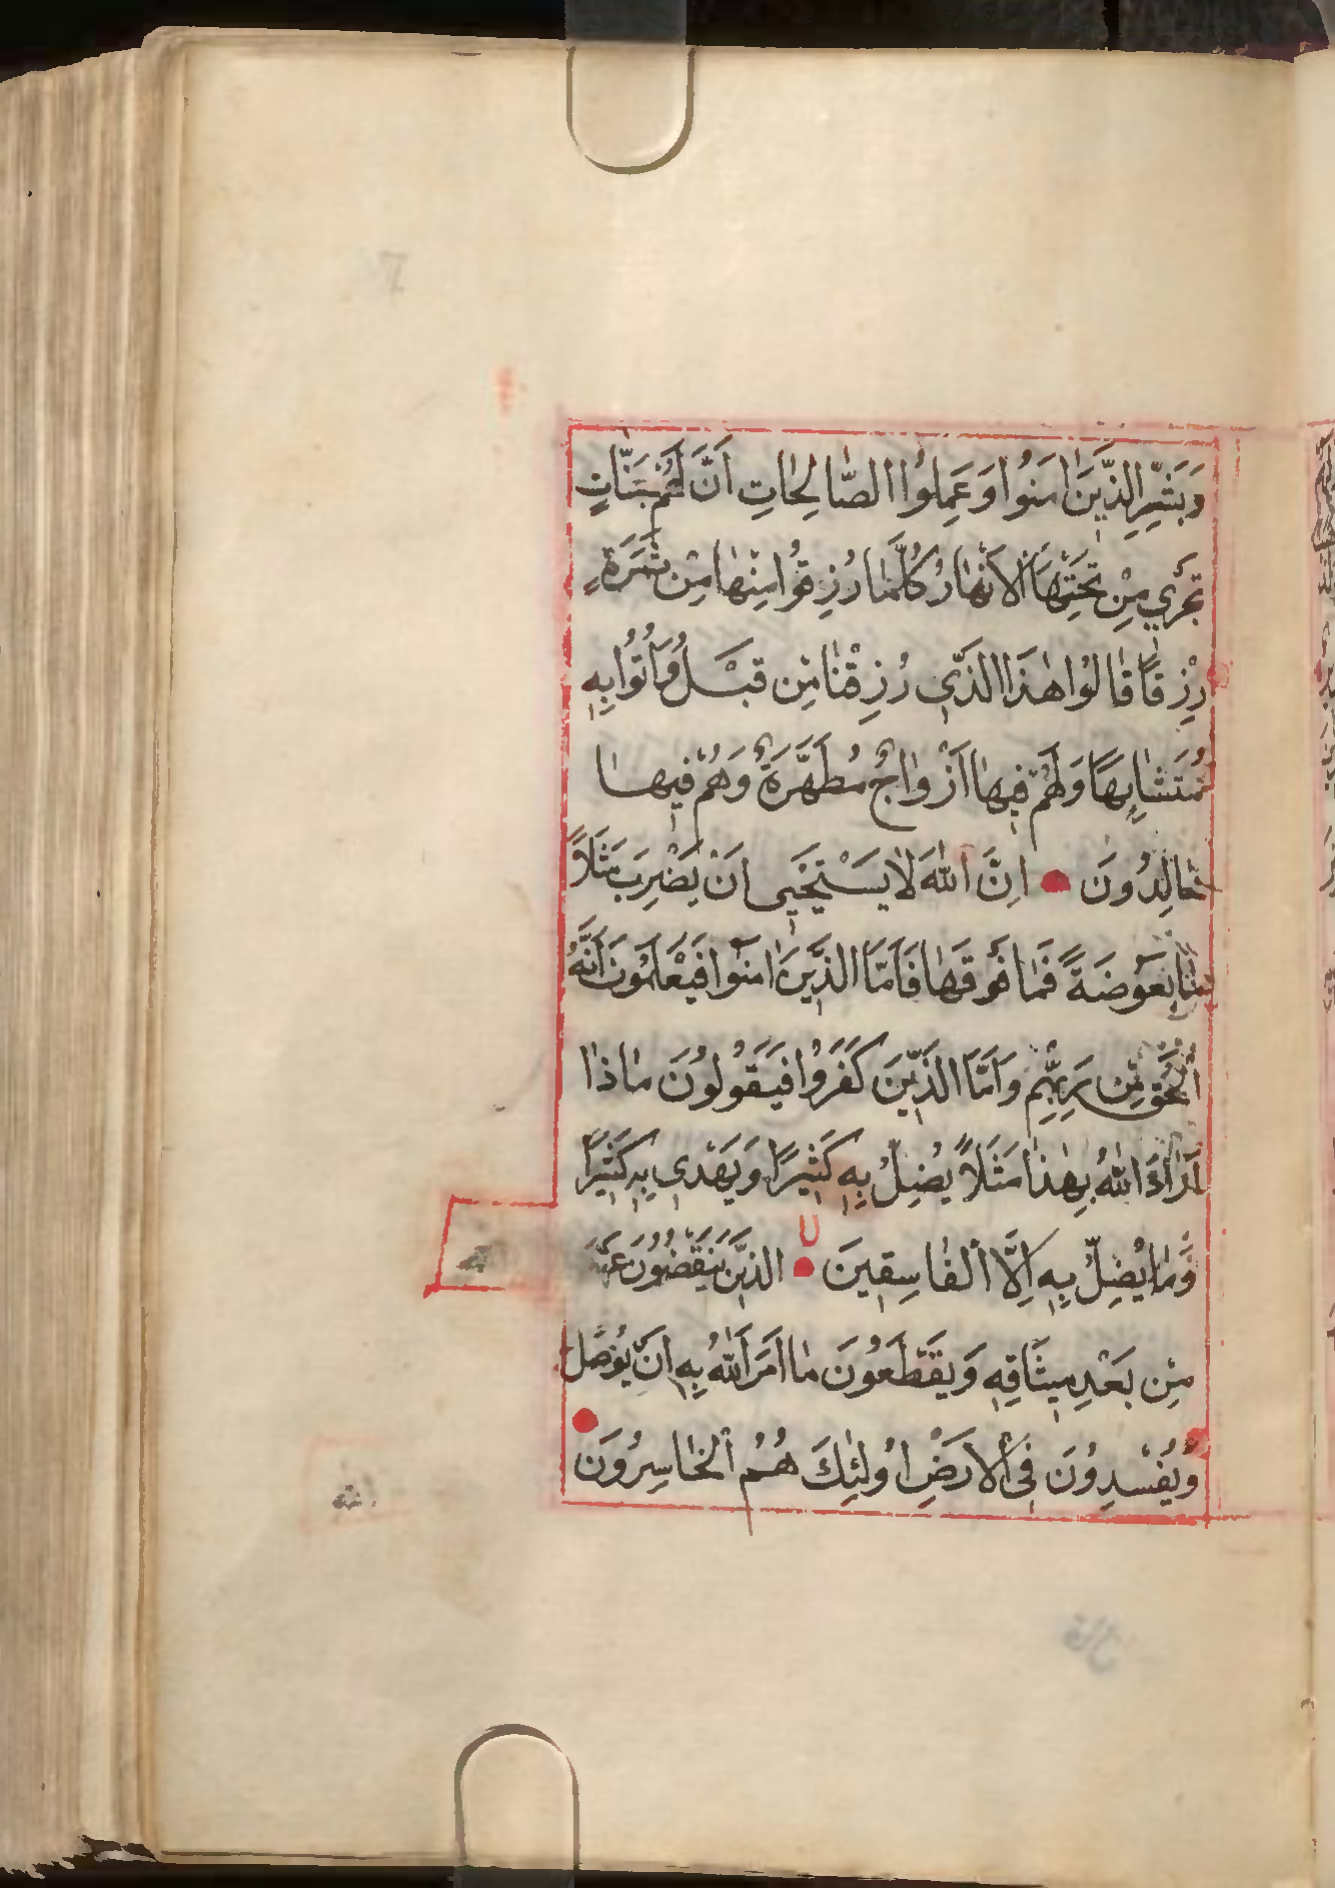 وَبَشِّرِ الَّذِينَ اٰمَنُوا وَعَمِلُوا الصَّالِحَاتِ اَنَّ لَهُمْ جَنَّاتٍ
تَجْرِي مِنْ تَحْتِهَا الْاَنْهَارُ كُلَّمَا رُزِقُوا مِنْهَا مِنْ ثَمَرَةٍ
رِزْقًا قَالُوا هٰذَا الَّذِي رُزِقْنَا مِنْ قَبْلُ وَاُتُوا بِهِ
مُتَشَابِهًا وَلَهُمْ فِيهَا اَزْوَاجٌ مُطَهَّرَةٌ وَهُمْ فِيهَا
خَالِدُونَ اِنَّ اللّٰهَ لَا يَسْتَحْيِى اَنْ يَضْرِبَ مَثَلًا
مَّا بَعُوضَةً فَمَا فَوْقَهَا فَاَمَّا الَّذِينَ اٰمَنُوا فَيَعْلَمُونَ اَنَّهُ
الْحَقُّ مِنْ رَبِّهِمْ وَاَمَّا الَّذِينَ كَفَرُوا فَيَقُولُونَ مَاذَا
اَرَادَ اللّٰهُ بِهٰذَا مَثَلًا يُضِلُّ بِهِ كَثِيرًا وَيَهْدِى بِهِ كَثِيرًا
وَمَا يُضِلُّ بِهِ اِلَّا الْفَاسِقِينَ الَّذِينَ يَنْقُضُونَ عَهْدَ
مِنْ بَعْدِ مِيثَاقِهِ وَيَقْطَعُونَ مَا اَمَرَ اللّٰهُ بِهِ اَنْ يُوصَلَ
وَيُفْسِدُونَ فِى الْاَرْضِ اُولٰئِكَ هُمُ الْخَاسِرُونَ